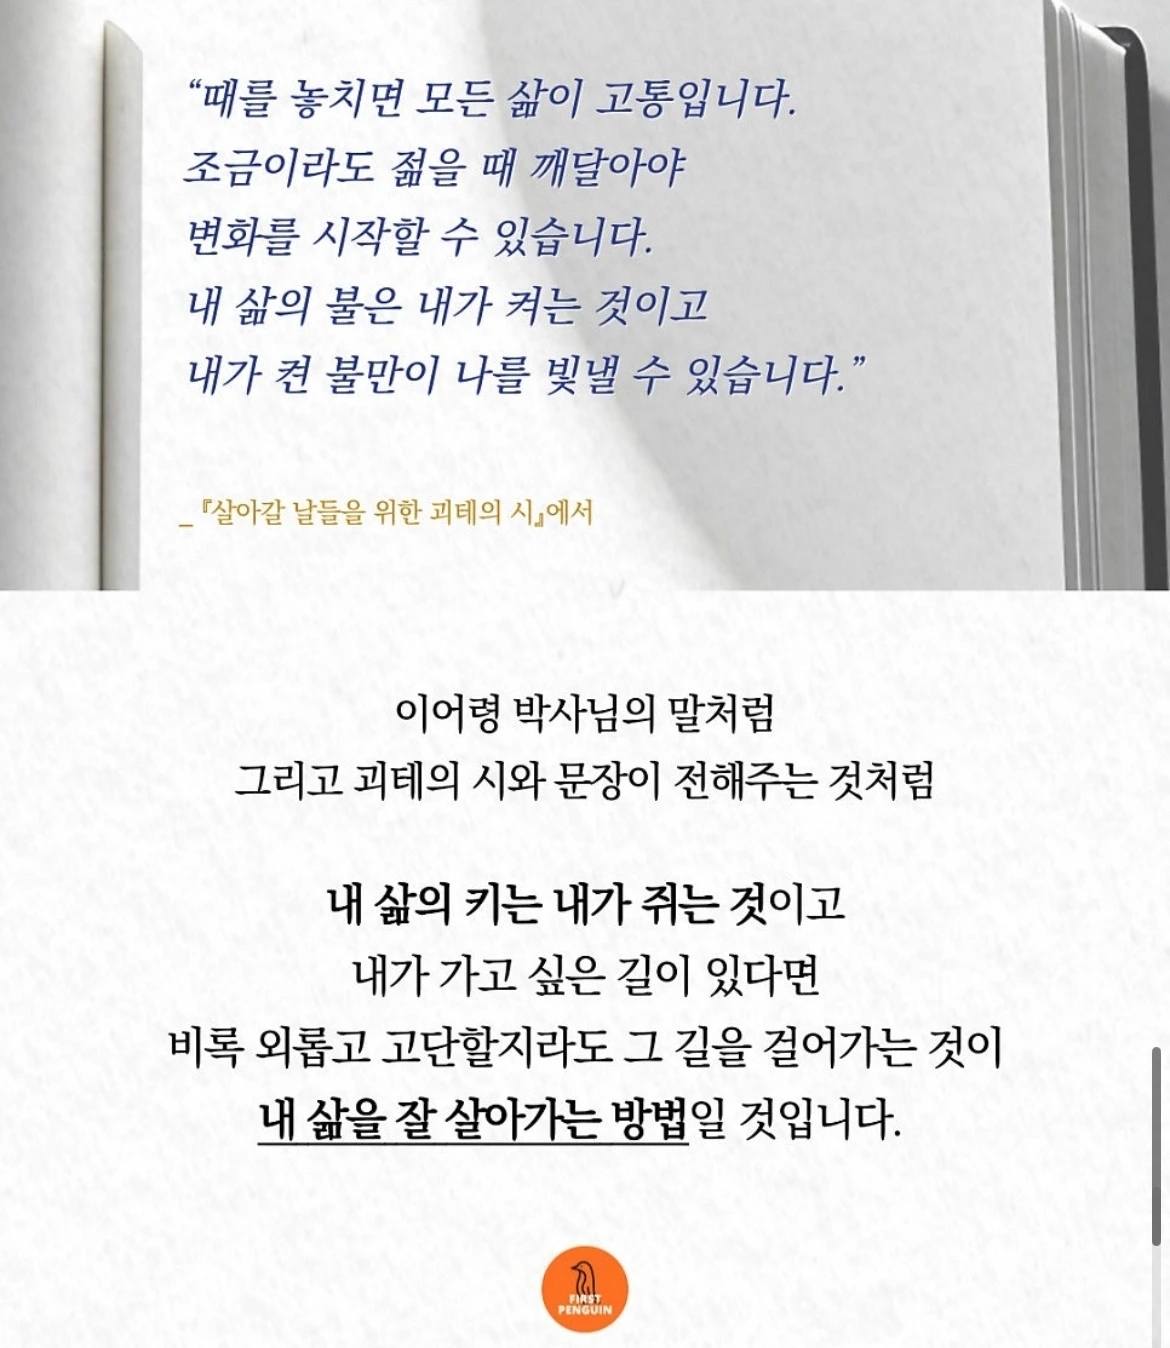 “때를 놓치면 모든 삶이 고통입니다.
조금이라도 젊을 때 깨달아야
변화를 시작할 수 있습니다.
내 삶의 불은 내가 켜는 것이고
내가 켠 불만이 나를 빛낼 수 있습니다.”
_『살아갈 날들을 위한 괴테의 시』에서
이어령 박사님의 말처럼
그리고 괴테의 시와 문장이 전해주는 것처럼
내 삶의 키는 내가 쥐는 것이고
내가 가고 싶은 길이 있다면
비록 외롭고 고단할지라도 그 길을 걸어가는 것이
내 삶을 잘 살아가는 방법일 것입니다.
FIRST
PENGUIN